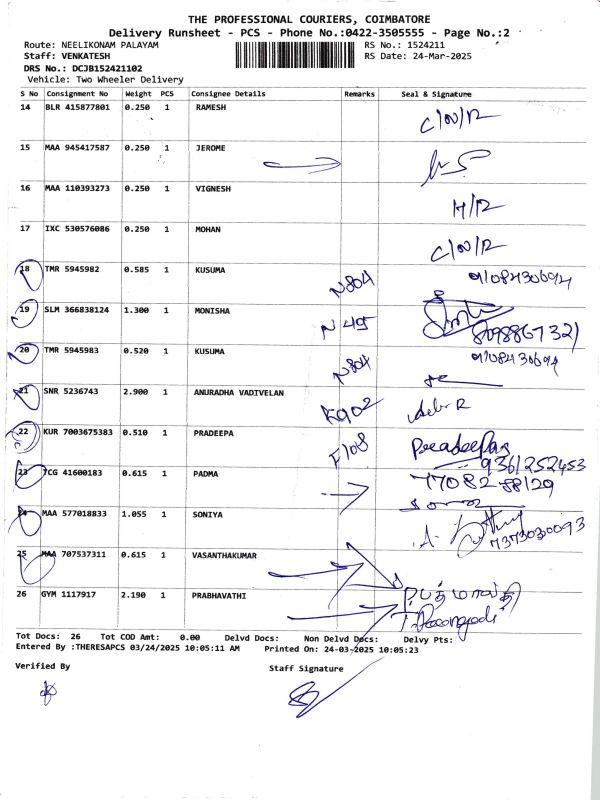 THE PROFESSIONAL COURIERS, COIMBATORE
Delivery Runsheet - PCS - Phone No.:0422-3505555 - Page No.:2
Route: NEELIKONAM PALAYAM RS No.: 1524211
Staff: VENKATESH RS Date: 24-Mar-2025
DRS No.: DCJB152421102
Vehicle: Two Wheeler Delivery
S No Consignment No Weight PCS Consignee Details Remarks Seal & Signature
14 BLR 415877801 0.250 1 RAMESH C/N/R
15 MAA 945417587 0.250 1 JEROME
16 MAA 110393273 0.250 1 VIGNESH
17 IXC 530576086 0.250 1 MOHAN C/N/R
18 TMR 5945982 0.585 1 KUSUMA N804
19 SLM 366838124 1.300 1 MONISHA N 45
20 TMR 5945983 0.520 1 KUSUMA N804
21 SNR 5236743 2.900 1 ANURADHA VADIVELAN K902
22 KUR 7003675383 0.510 1 PRADEEPA F108 Pradeepa
9361252453
23 TCG 41600183 0.615 1 PADMA 77082 88129
24 MAA 577018833 1.055 1 SONIYA
7373030093
25 MAA 707537311 0.615 1 VASANTHAKUMAR
26 GYM 1117917 2.190 1 PRABHAVATHI
Tot Docs: 26 Tot COD Amt: 0.00 Delvd Docs: Non Delvd Docs: Delvy Pts:
Entered By :THERESAPCS 03/24/2025 10:05:11 AM Printed On: 24-03-2025 10:05:23
Verified By Staff Signature